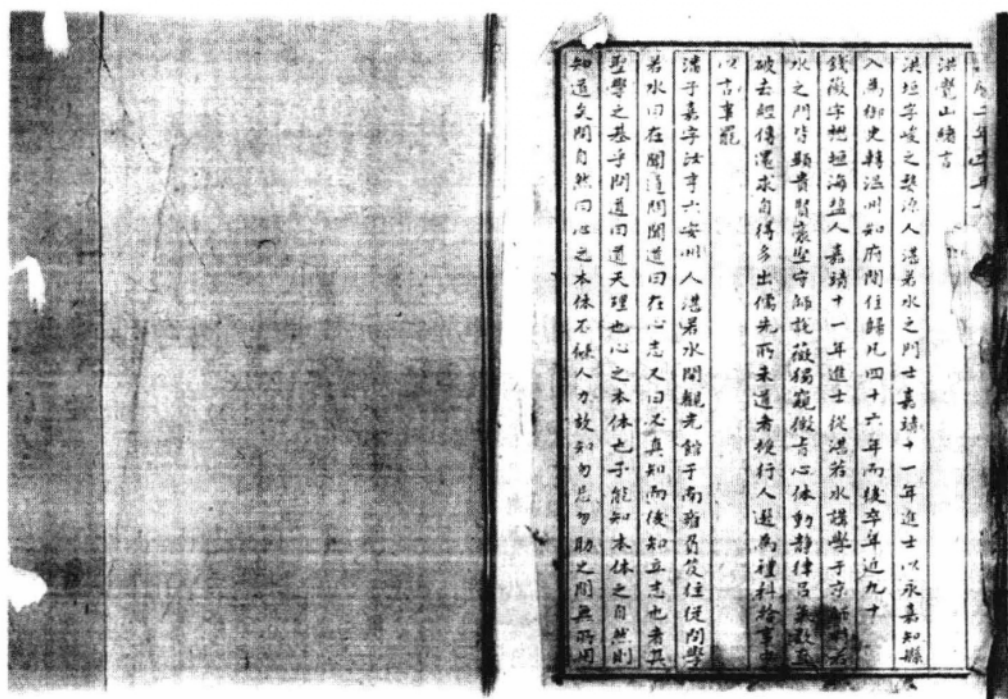 洪覺山緒言
洪垣字峻之婺源人湛若水之門士嘉靖十一年進士以永嘉知縣
入為御史轉温州知府閒住歸凡四十六年而後卒年近九十
錢薇字懋垣海鹽人嘉靖十一年進士從湛若水講學于京師時若
水之門皆顯貴賢豪堅守師說薇獨窺微㫖心体動静律吕氣數直
破去經傳還求自得多出儒先所未道者授行人選為禮科給事中
以言事罷
潘子嘉字汝亨六安州人湛若水開觀光館于南雍負笈往從問學
若水曰在聞道問聞道曰在心志又曰必真知而後知立志也者其
聖學之基乎問道曰道天理也心之本体也子能知本体之自然則
知道矣問自然曰心之本体不假人力故知勿忘勿助之間無所用